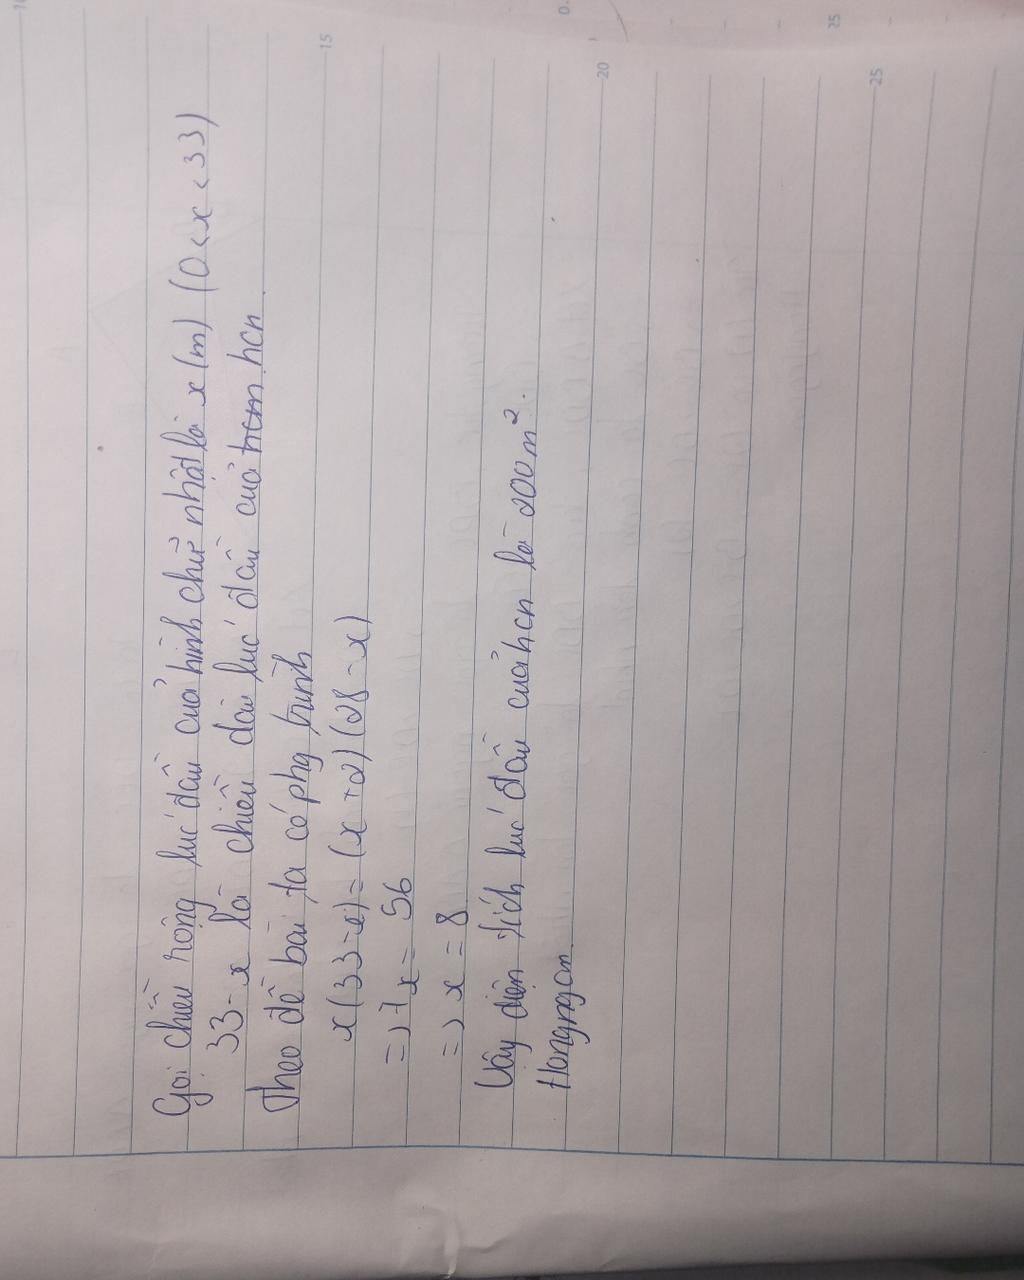 Gọi chiều rộng lúc đầu của hình chữ nhật là x (m) (0 < x < 33)
33 - x là chiều dài lúc đầu của hcm hcn
Theo đề bài ta có phg trình
x (33 - x) = (x + 2) (28 - x)
=> 7x = 56
=> x = 8
Vậy diện tích lúc đầu của hcn là 200 m².
Hongngan
15
20
25
25